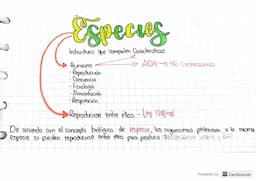 Especies
Individuos que comparten Características
Humano → ADN → 46 Cromosomas
- Reproducción
- Conciencia
- Fisiología
- Alimentación
- Respiración
Reproducirse entre ellos - Ley Natural
De acuerdo con el concepto biológico de especie, los organismos pertenecen a la misma
especie si pueden reproducirse entre ellos para producir
Powered by CamScanner